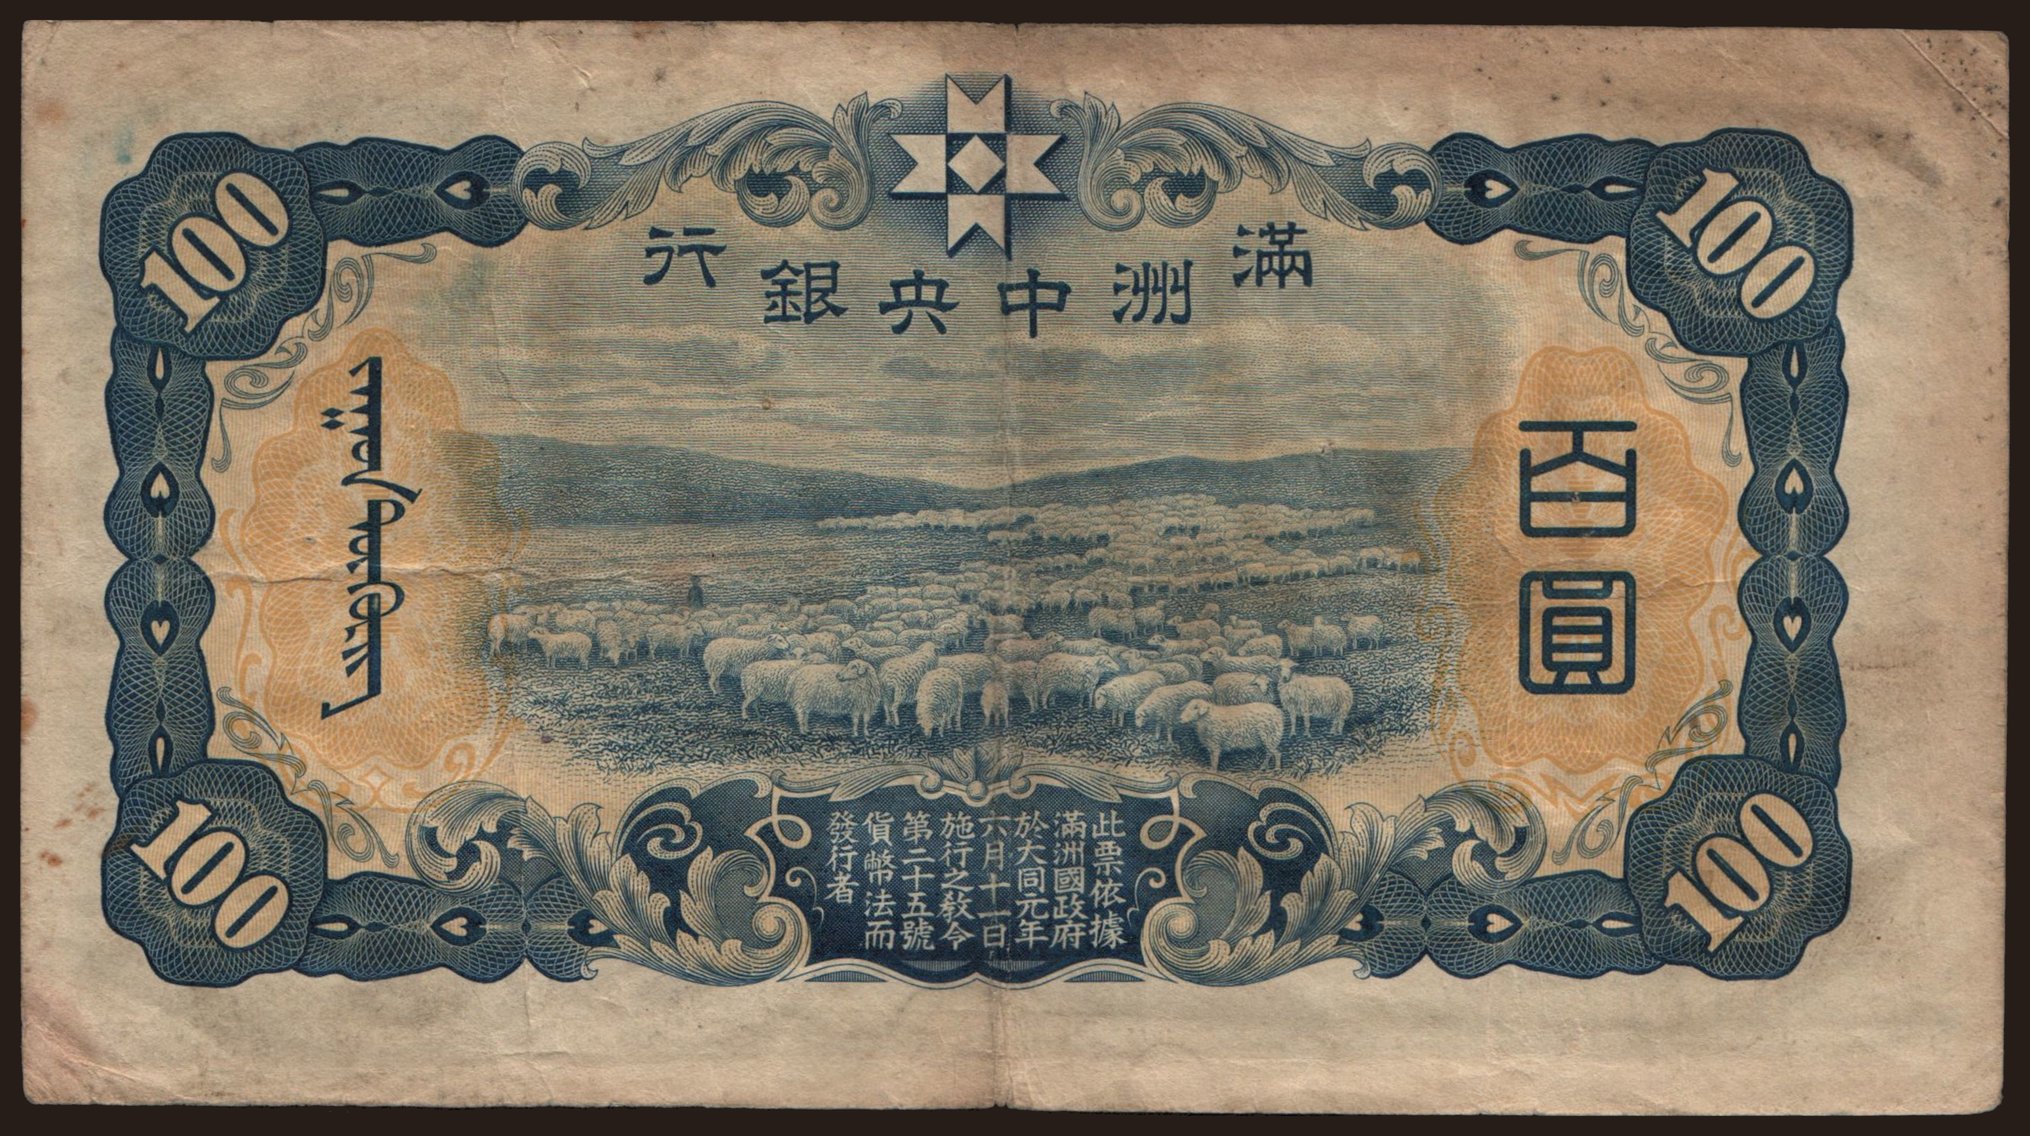 滿洲中央銀行
100
100
百圓
此票依據
滿洲國政府
於大同元年
六月十一日
施行之敎令
第二十五號
貨幣法而
發行者
100
100